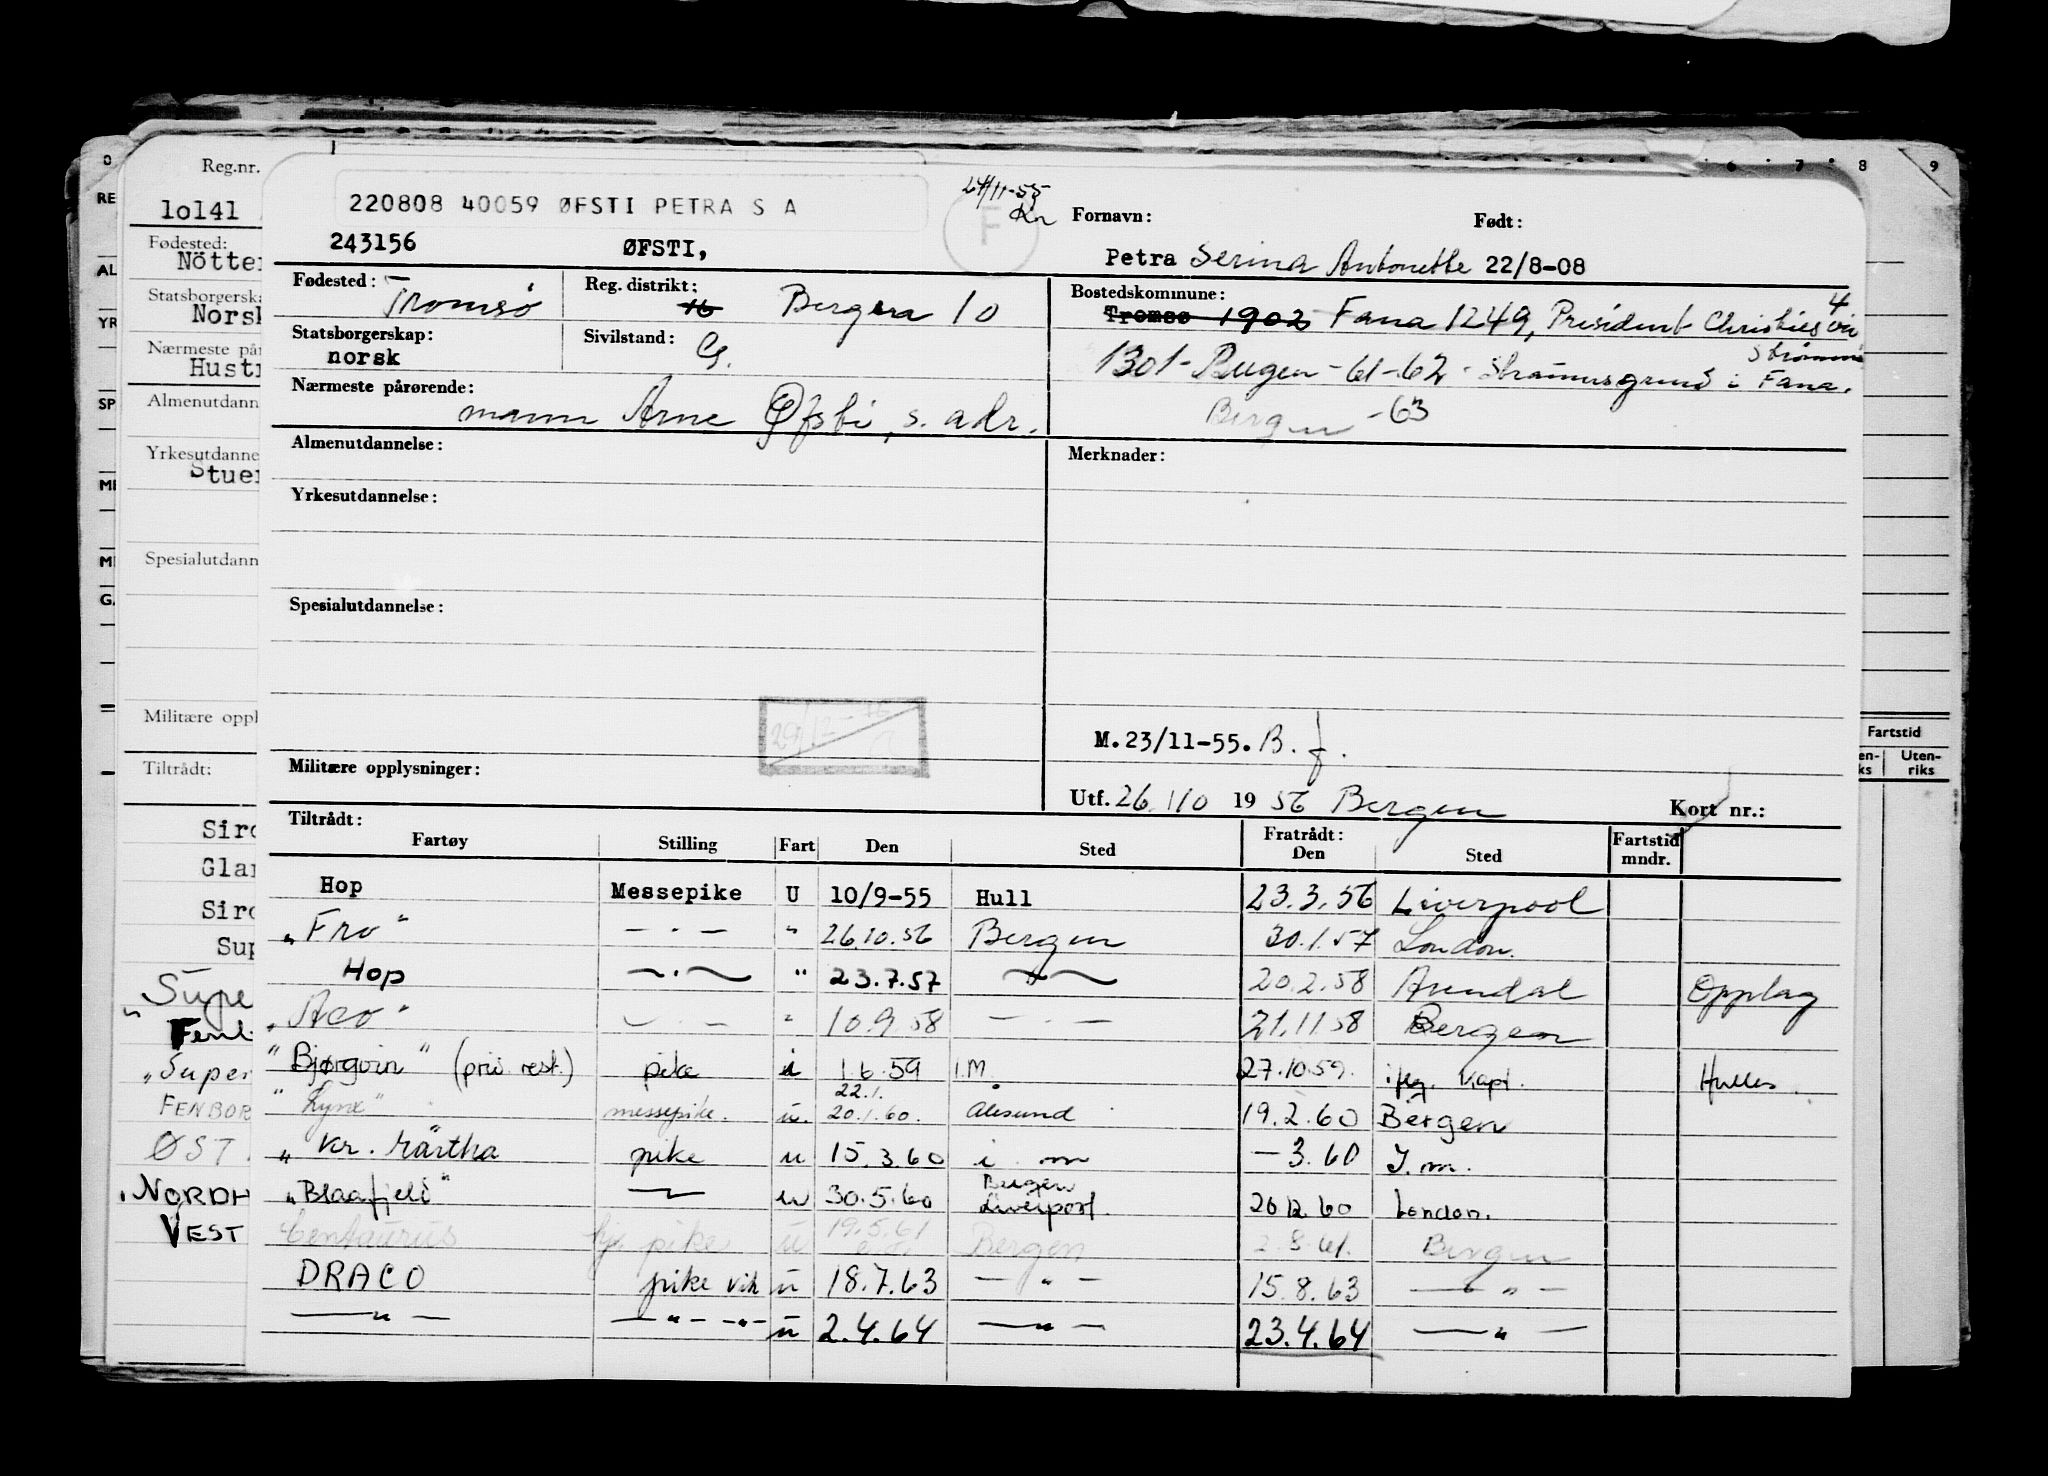 220808 40059 ØFSTI PETRA S A
24/11-55
Kr
F
243156 ØFSTI,
Fornavn: Født:
Petra Serina Antonette 22/8-08
Fødested: Tromsø
Reg. distrikt: 16 Bergen 10
Bostedskommune: 4
Tromsø 1902 Fana 1249, President Christies vei
Statsborgerskap: norsk
Sivilstand: G.
1301 - Bergen - 61-62 - Straumsgrend i Fana.
Nærmeste pårørende:
mann Arne Øfsti, s. adr.
Bergen -63
Almenutdannelse:
Merknader:
Yrkesutdannelse:
Spesialutdannelse:
M. 23/11-55. B. f.
Militære opplysninger:
Utf. 26/10 1956 Bergen Kort nr.:
Tiltrådt: Fratrådt:
Fartøy Stilling Fart Den Sted Den Sted Fartstid mndr.
Hop Messepike U 10/9-55 Hull 23.3.56 Liverpool
"Fro" — " — " 26.10.56 Bergen 30.1.57 London.
Hop — " — " 23.7.57 — " — 20.2.58 Arendal Opplag
"Aco" — " — " 10.9.58 — " — 21.11.58 Bergen
"Bjørgvin" (priv. rest.) pike i 1.6.59 I.M. 27.10.59. iflg. kapt. Hulles.
22.1.
"Lynx" messepike. u. 20.1.60. Ålesund 19.2.60 Bergen
"Kr. Märtha pike u 15.3.60 i m — 3.60 I.m.
Bergen
"Blaafjell" — " — u 30.5.60 Liverpool. 20.12.60 London.
Centaurus pike u 19.5.61 Bergen 2.8.61. Bergen
DRACO pike vik u 18.7.63 — " — 15.8.63 — " —
— " — — " — — " — u 2.4.64 — " — 23.4.64 — " —
Reg.nr.
10141
Fødested:
Nötter
Statsborgerska
Norsk
Nærmeste på
Hustr
Almenutdann
Yrkesutdanne
Stuer
Spesialutdann
Militære oppl
Tiltrådt:
Sirc
Glan
Sirc
Sup
"Supe
Fenb
"Super
FENBOR
ØST
"NORDH
VEST
0
RE
AL
YR
SP
ME
MI
GA
6 7 8 9
Fartstid
en-
ks
Uten-
riks